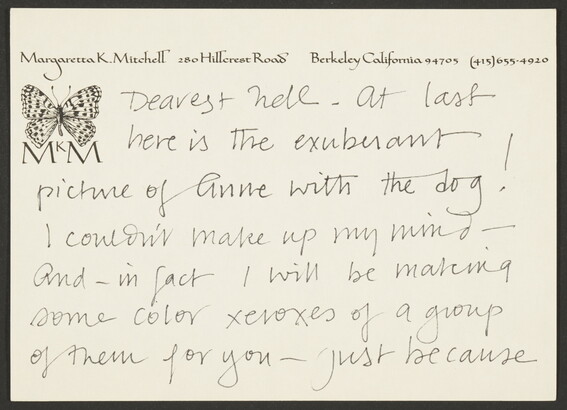 Margaretta K. Mitchell 280 Hillcrest Road Berkeley California 94705 (415)655-4920
MKM
Dearest Nell - At last
here is the exuberant
picture of Anne with the dog!
I couldn't make up my mind -
And - in fact I will be making
some color xeroxes of a group
of them for you - just because